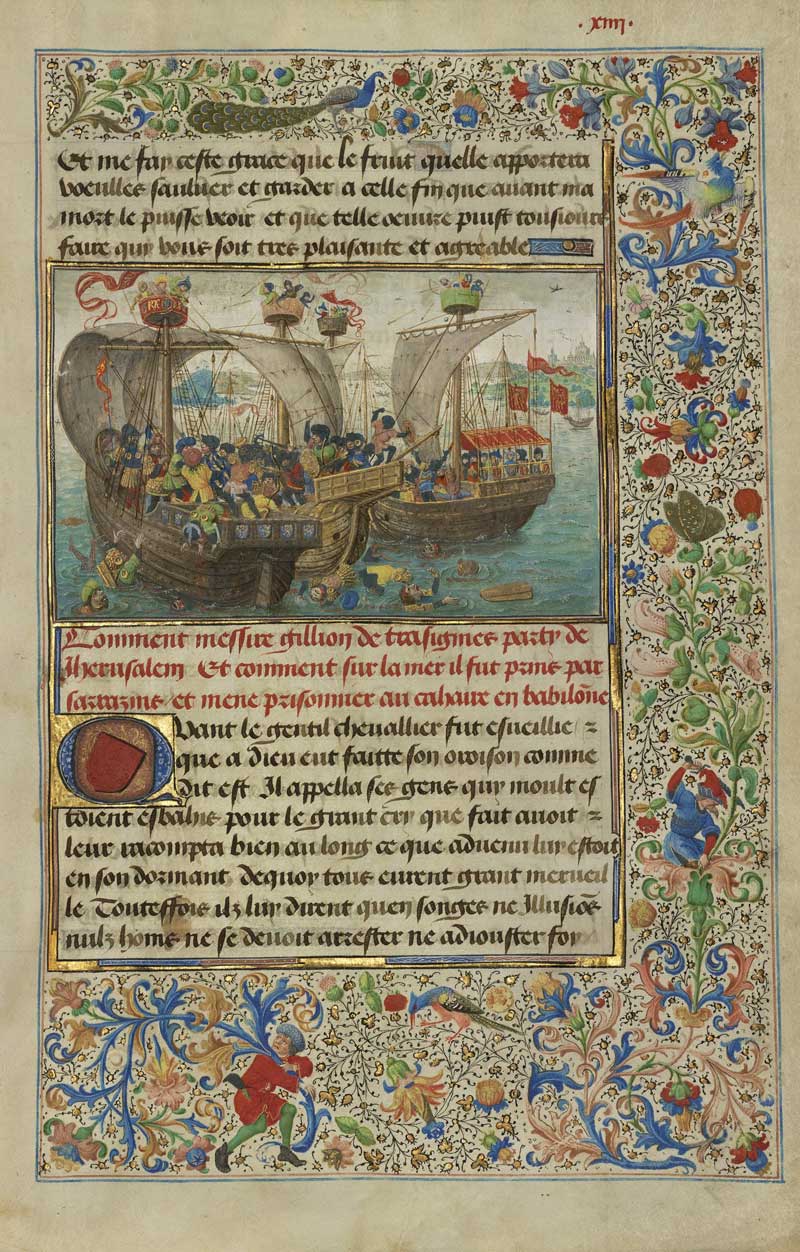 .xiiii.
Et me fay ceste grace que le fruit quelle apportera
voeulles sauluer et garder a celle fin que auant ma
mort le puisse veoir et que telle oeuure puist tousiours
faire quy vous soit tres plaisante et agreable
Comment messire gillion de trasignies party de
Jherusalem Et comment sur la mer il fut prins par
sarrazins et mene prisonnier au cahaire en babilone
Quant le gentil chevallier fut esueillie
que a dieu eut faitte son oroison comme
dit est Il appella ses gens quy moult es
toient esbahis pour le grant cry que fait auoit
leur racompta bien au long ce que aduenu luy estoit
en son dormant dequoy tous eurent grant merueil
le Touteffois ilz luy dirent quen songes ne Illusiões
nulz homs ne se deuoit arrester ne adiouster foy